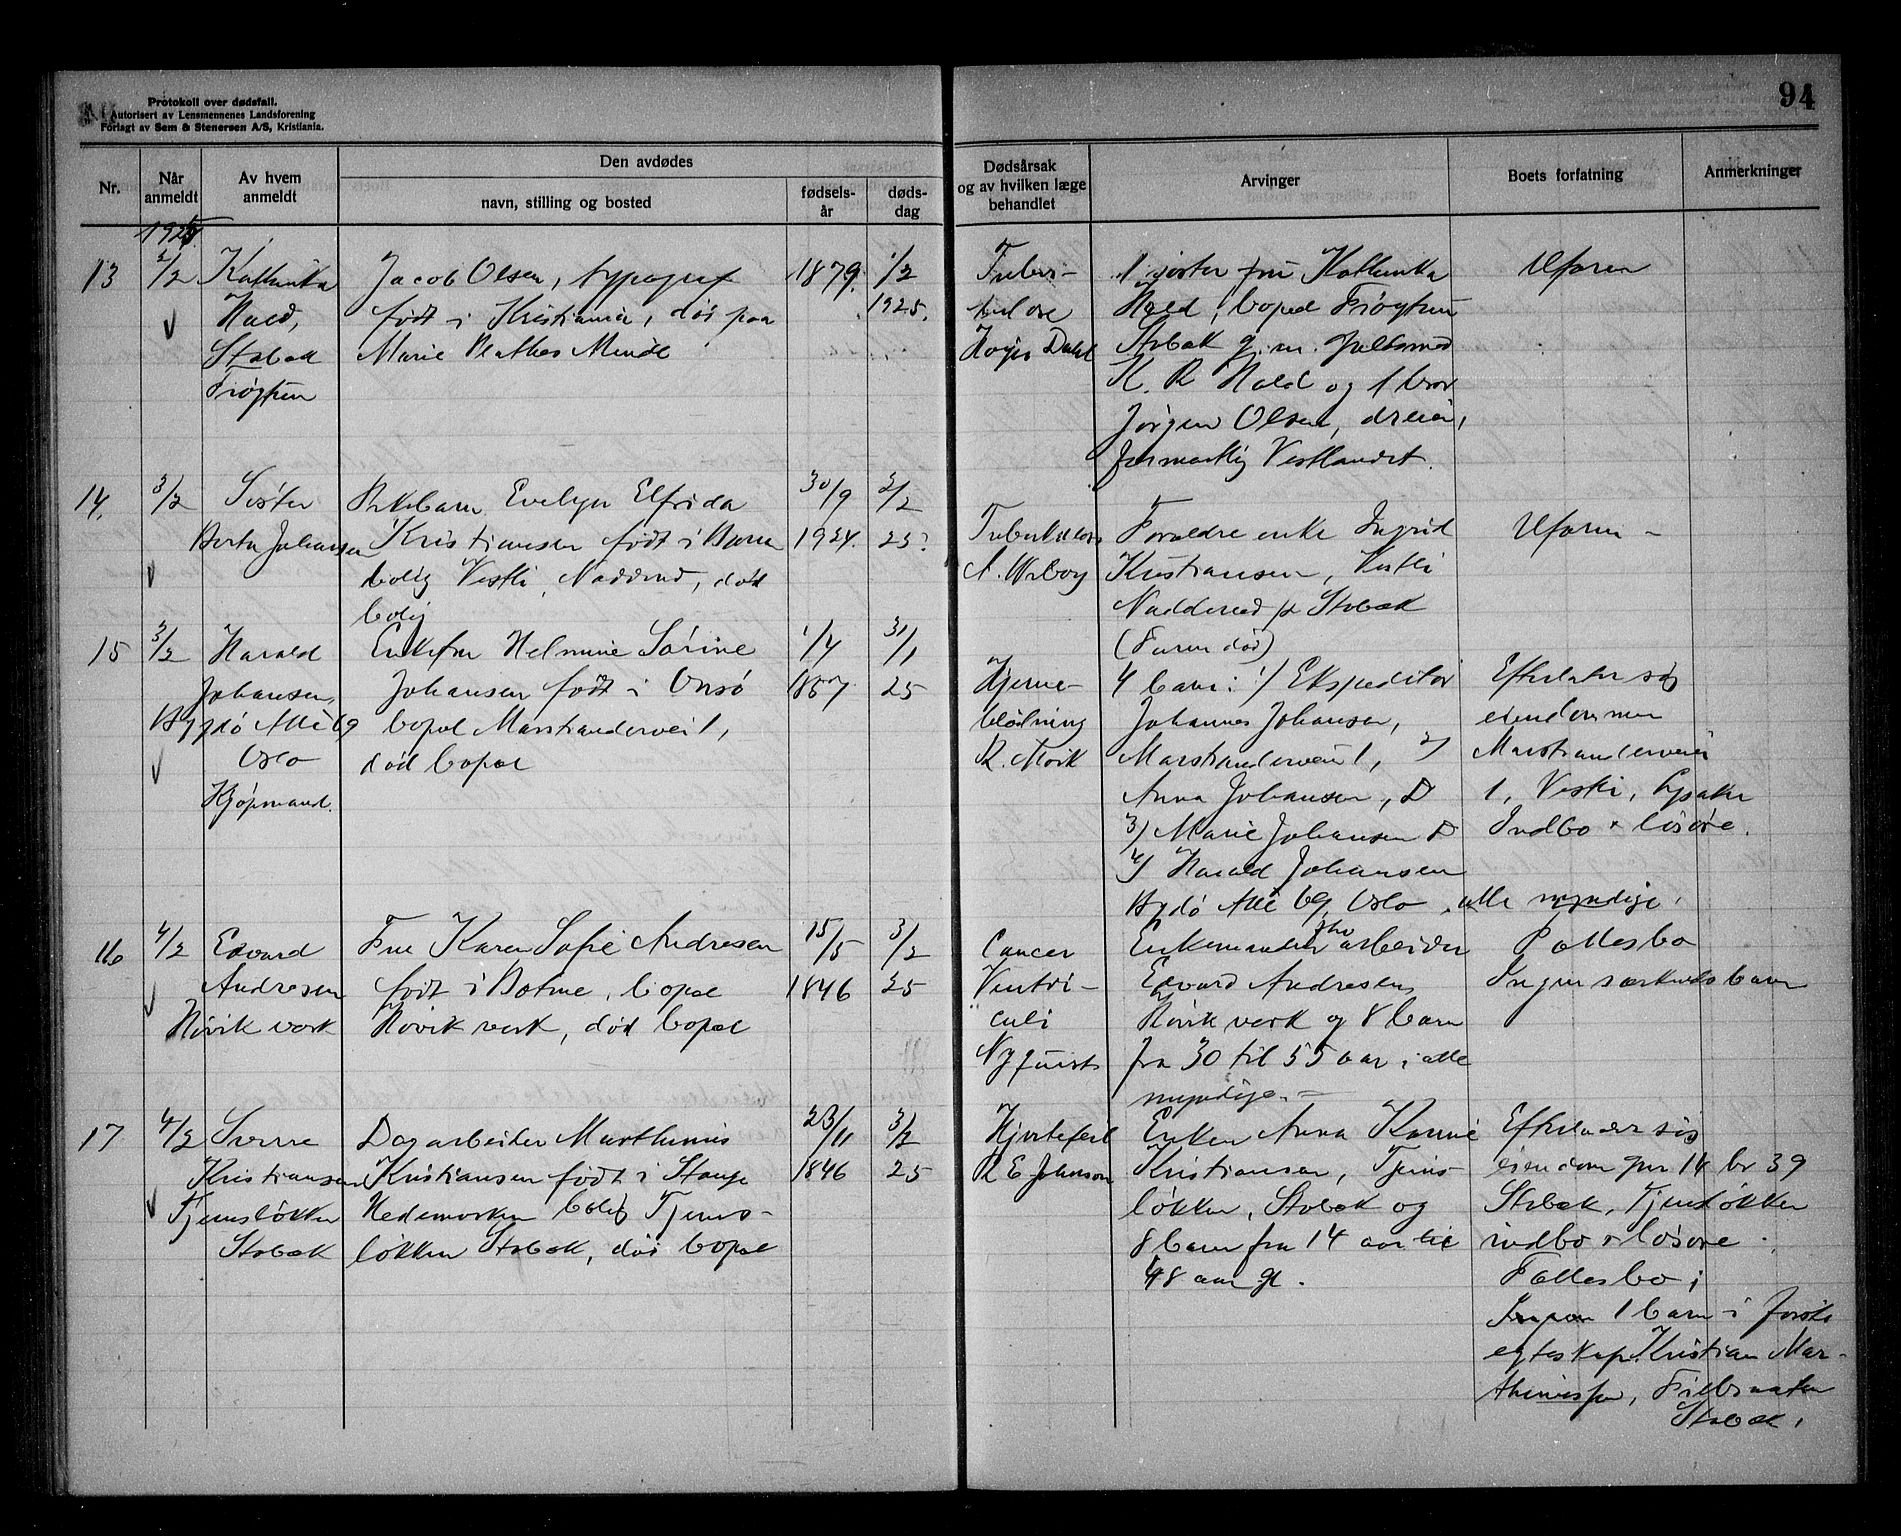 94
Protokoll over dødsfall.
Autorisert av Lensmennenes Landsforening
Forlagt av Sem & Stenersen A/S, Kristiania.
Nr.
Når anmeldt
Av hvem anmeldt
Den avdødes
navn, stilling og bosted
fødsels-år
døds-dag
Dødsårsak og av hvilken læge behandlet
Arvinger
Boets forfatning
Anmerkninger
1925.
13
2/2
Kathinka
Hald,
Stabæk
Jacob Olsen, typograf
født i Kristiania, død paa
Marie Plathes Minde
1879.
1/2
1925.
Tuber-
kulose
Dahl
1 søster fru Kathinka
Hald, boped
Stabæk g. m.
K. R Hald og 1 bror
Jørgen Olsen, dreier,
Vestlandet.
Uforen
14.
3/2
Søster
Berta Johansen
Pikebarn Evelyn Elfrida
Kristiansen født i Bærum
bolig Vestli, Nadderud, død
bolig
30/9
1924.
2/2
25.
Tuberkulose
Forældre enke Ingrid
Kristiansen, Vestli
Nadderud pr Stabæk
(Faren død)
Uforen -
15
3/2
Harald
Johansen,
Bygdø Allé 69
Oslo
Kjøpmand.
Enkefru Helmine Sørine
Johansen født i Onsø
bopæl Marstrandervei 1,
død bopæl
1/4
1857
31/1
25
Hjerne-
blødning
R. Mork
4 barn: 1/ Ekspeditør
Johannes Johansen,
Marstranderveien 1, 2/
Anna Johansen, D
3/ Marie Johansen D
4/ Harald Johansen
Bygdø Alle 69, Oslo, alle myndige.
Efterlater sig
eiendommen
Marstranderveien
1, Vestli, Lysaker
Indbo & løsøre.
16
4/2
Edvard
Andresen
Høvik verk
Frue Karen Sofie Andresen
født i Botne, bopæl
Høvik verk, død bopæl
15/5
1846
3/2
25
Cancer
Ventri-
culi
Nyquist
Enkemanden fhv arbeider
Edvard Andresen,
Høvik verk og 8 barn
fra 30 til 55 aar, alle
myndige. -
Fællesbo
Ingen særkuldsbarn
17
4/2
Sverre
Kristiansen
Tjernsløkken
Stabæk
Dagarbeider Marthinus
Kristiansen født i Stange
Hedemarken bolig Tjerns-
løkken Stabæk, død bopæl
23/11
1846
3/2
25
Hjertefeil
R E Johnson
Enken Anna Karine
Kristiansen, Tjerns-
løkken, Stabæk og
8 barn fra 14 aar til
48 aar gl.
Efterlader sig
eiendom gnr 14 br 39
Stabæk, Tjernsløkken
indbo & løsøre.
Fællesbo;
1 barn i første
egteskap. Kristian Mar-
thiniussen,
Stabæk.